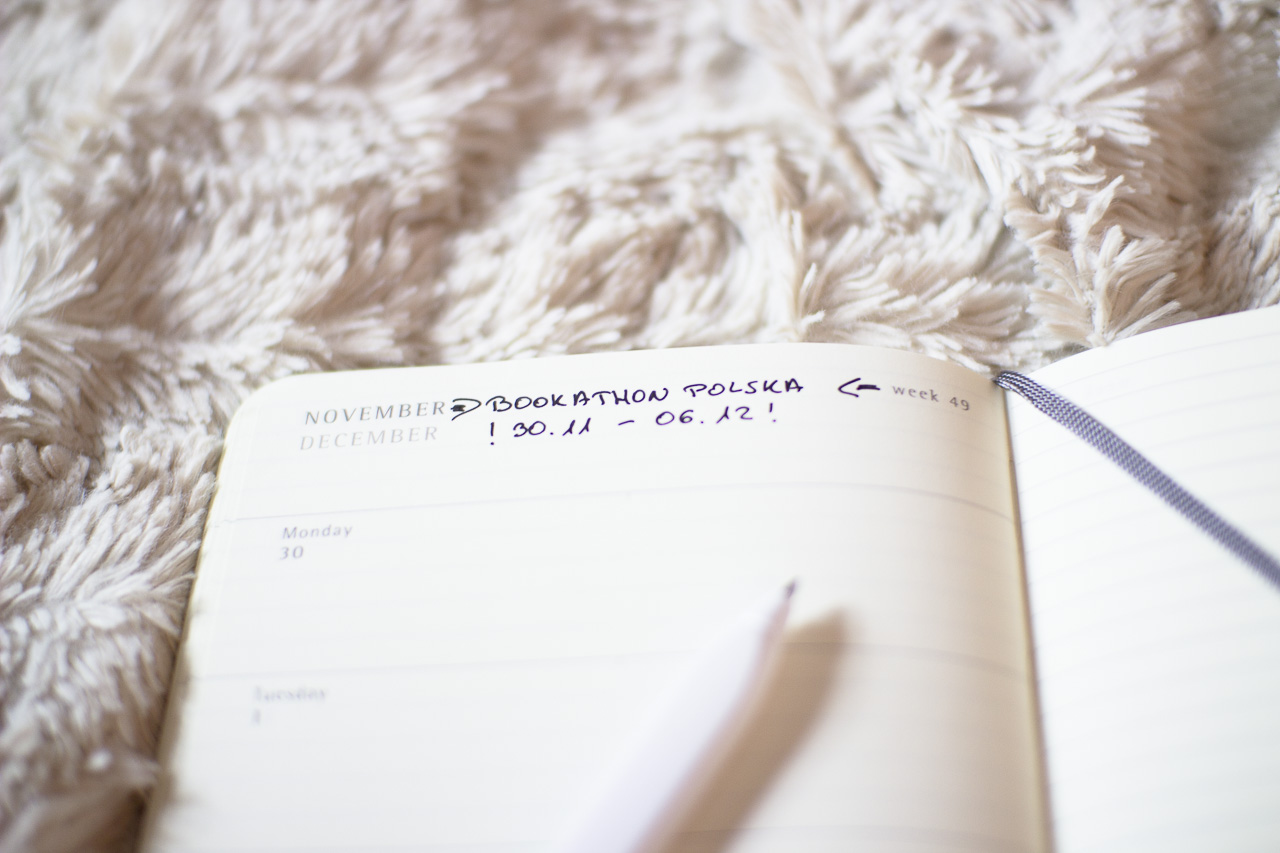 NOVEMBER → BOOKATHON POLSKA ← week 49
DECEMBER ! 30.11 - 06.12 !
Monday
30
Tuesday
1